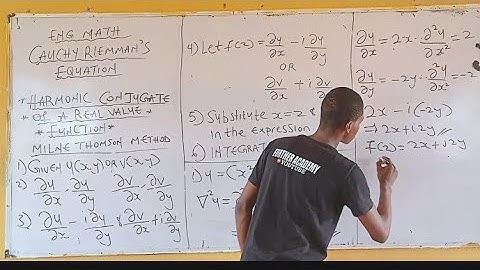 ENG MATH
CAUCHY RIEMMAN'S
EQUATION
*HARMONIC CONJUGATE
* OF A REAL VALUE
* FUNCTION
MILNE THOMSON METHOD
1) GIVEN U(X,Y) OR V(X,Y)
2) ∂U/∂x, ∂U/∂y, ∂V/∂x, ∂V/∂y
3) ∂U/∂x - i∂U/∂y & ∂V/∂x + i∂V/∂y
4) Let f'(z) = ∂U/∂x - i∂U/∂y
OR
∂V/∂x + i∂V/∂y
5) Substitute x=z &
in the expression
6) INTEGRAT
1) U = (X²
∇²U =
∂U/∂x = 2x · ∂²U/∂x² = 2
∂U/∂y = -2y · ∂²U/∂x² = -2
2x - i(-2y)
⇒ 2x + i2y //
f'(z) = 2x + i2y
FURTHER ACADEMY
YOUTUBE